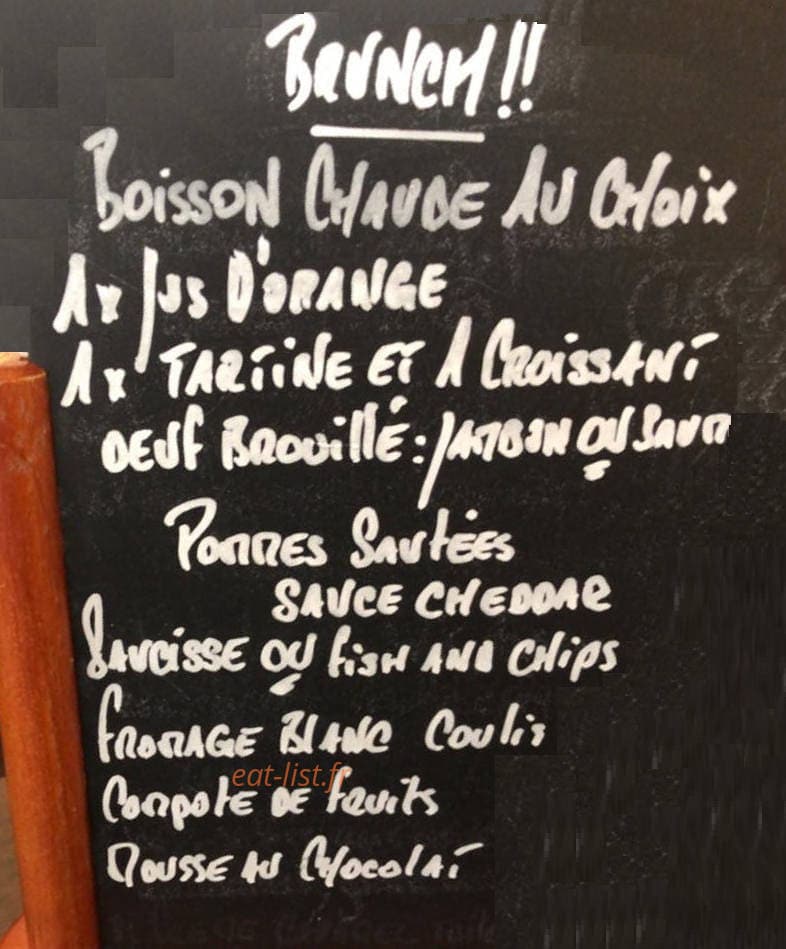 BRUNCH!!
BOISSON CHAUDE AU CHOIX
1x JUS D'ORANGE
1x TARTINE ET 1 CROISSANT
OEUF BROUILLÉ: JAMBON OU
POMMES SAUTÉES
SAUCE CHEDDAR
SAUCISSE OU FISH AND CHIPS
FROMAGE BLANC COULIS
eat-list.fr
COMPOTE DE FRUITS
MOUSSE AU CHOCOLAT